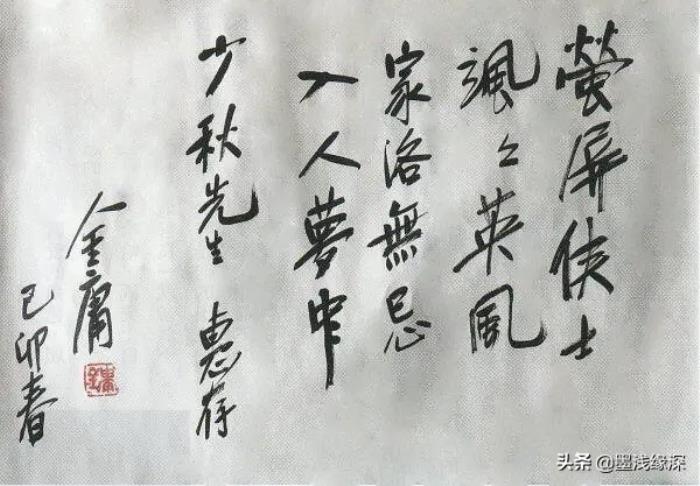 螢屏俠士
颯々英風
家洛無忌
入人夢中
少秋先生 惠存
金庸
己卯春
头条 @墨浅缘深